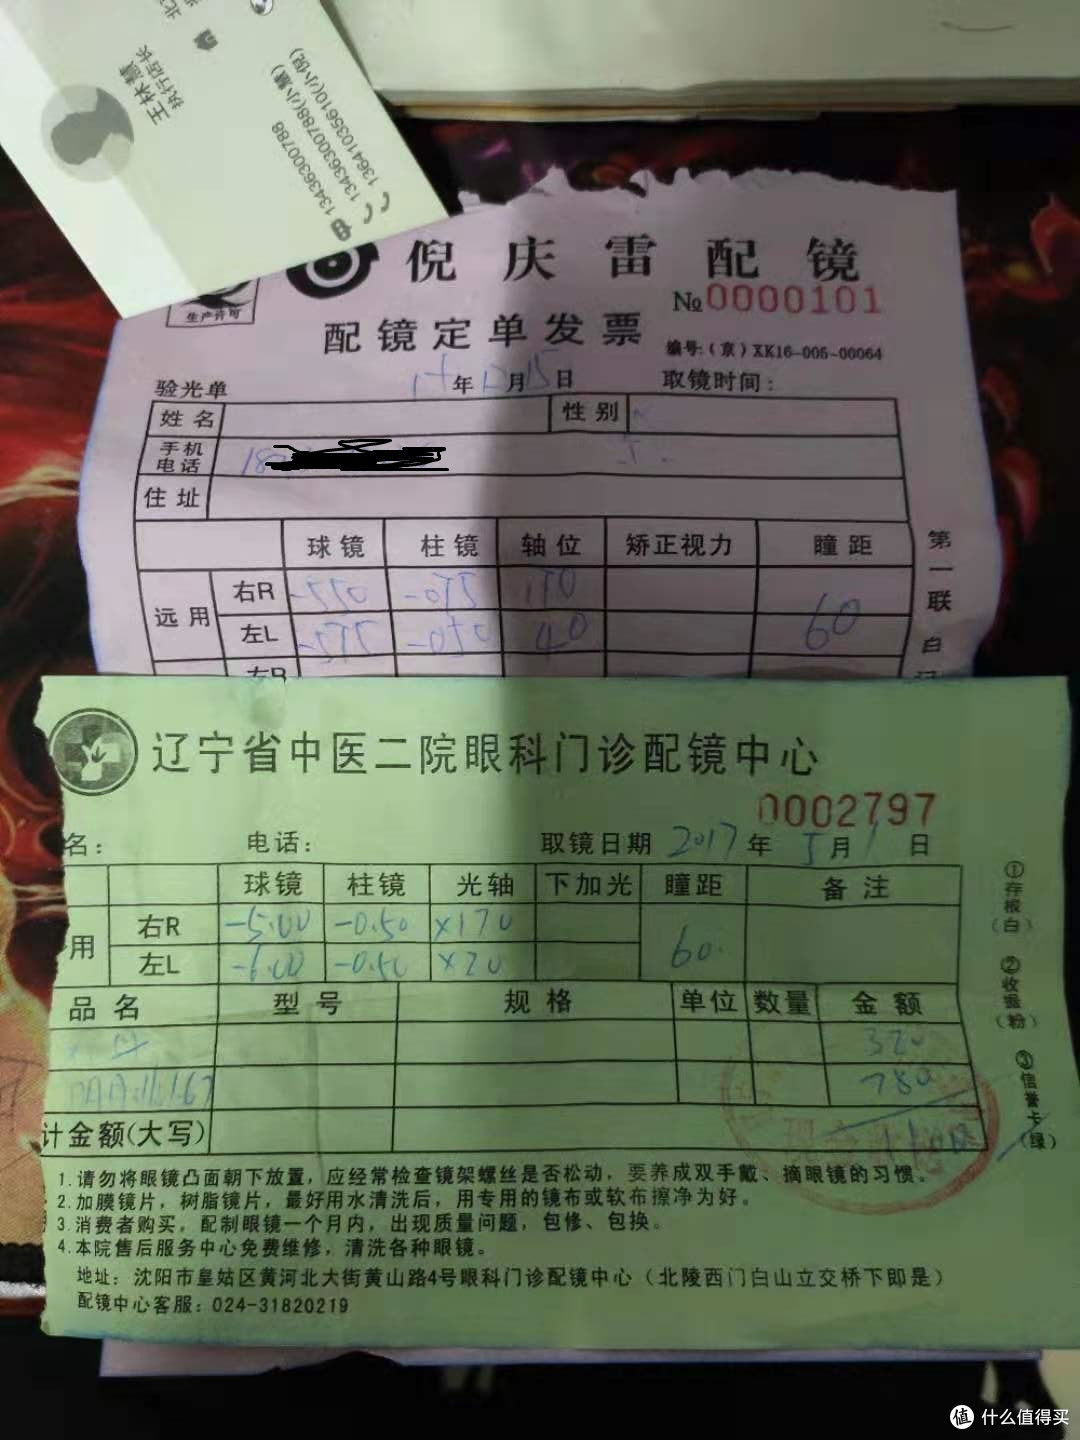 王林慧
执行店长
13436300788
13436300788(小慧)
13641035610(小倪)
生产许可
倪庆雷配镜
№0000101
配镜定单发票
编号:(京)XK16-005-00064
验光单 年12月15日 取镜时间:
姓名 性别
手机电话 18
住址
球镜 柱镜 轴位 矫正视力 瞳距
远用 右R -550 -075 170 60
左L -575 -050 40
右R
第一联
白
辽宁省中医二院眼科门诊配镜中心
0002797
名: 电话: 取镜日期 2017年5月1日
球镜 柱镜 光轴 下加光 瞳距 备注
用 右R -5.00 -0.50 ×170 60.
左L -6.00 -0.50 ×20
品名 型号 规格 单位 数量 金额
320
1.67 780
计金额(大写) 1100
①存根(白)
②收据(粉)
③信誉卡(绿)
1.请勿将眼镜凸面朝下放置，应经常检查镜架螺丝是否松动，要养成双手戴、摘眼镜的习惯。
2.加膜镜片，树脂镜片，最好用水清洗后，用专用的镜布或软布擦净为好。
3.消费者购买，配制眼镜一个月内，出现质量问题，包修、包换。
4.本院售后服务中心免费维修，清洗各种眼镜。
地址：沈阳市皇姑区黄河北大街黄山路4号眼科门诊配镜中心（北陵西门白山立交桥下即是）
配镜中心客服：024-31820219
值 什么值得买